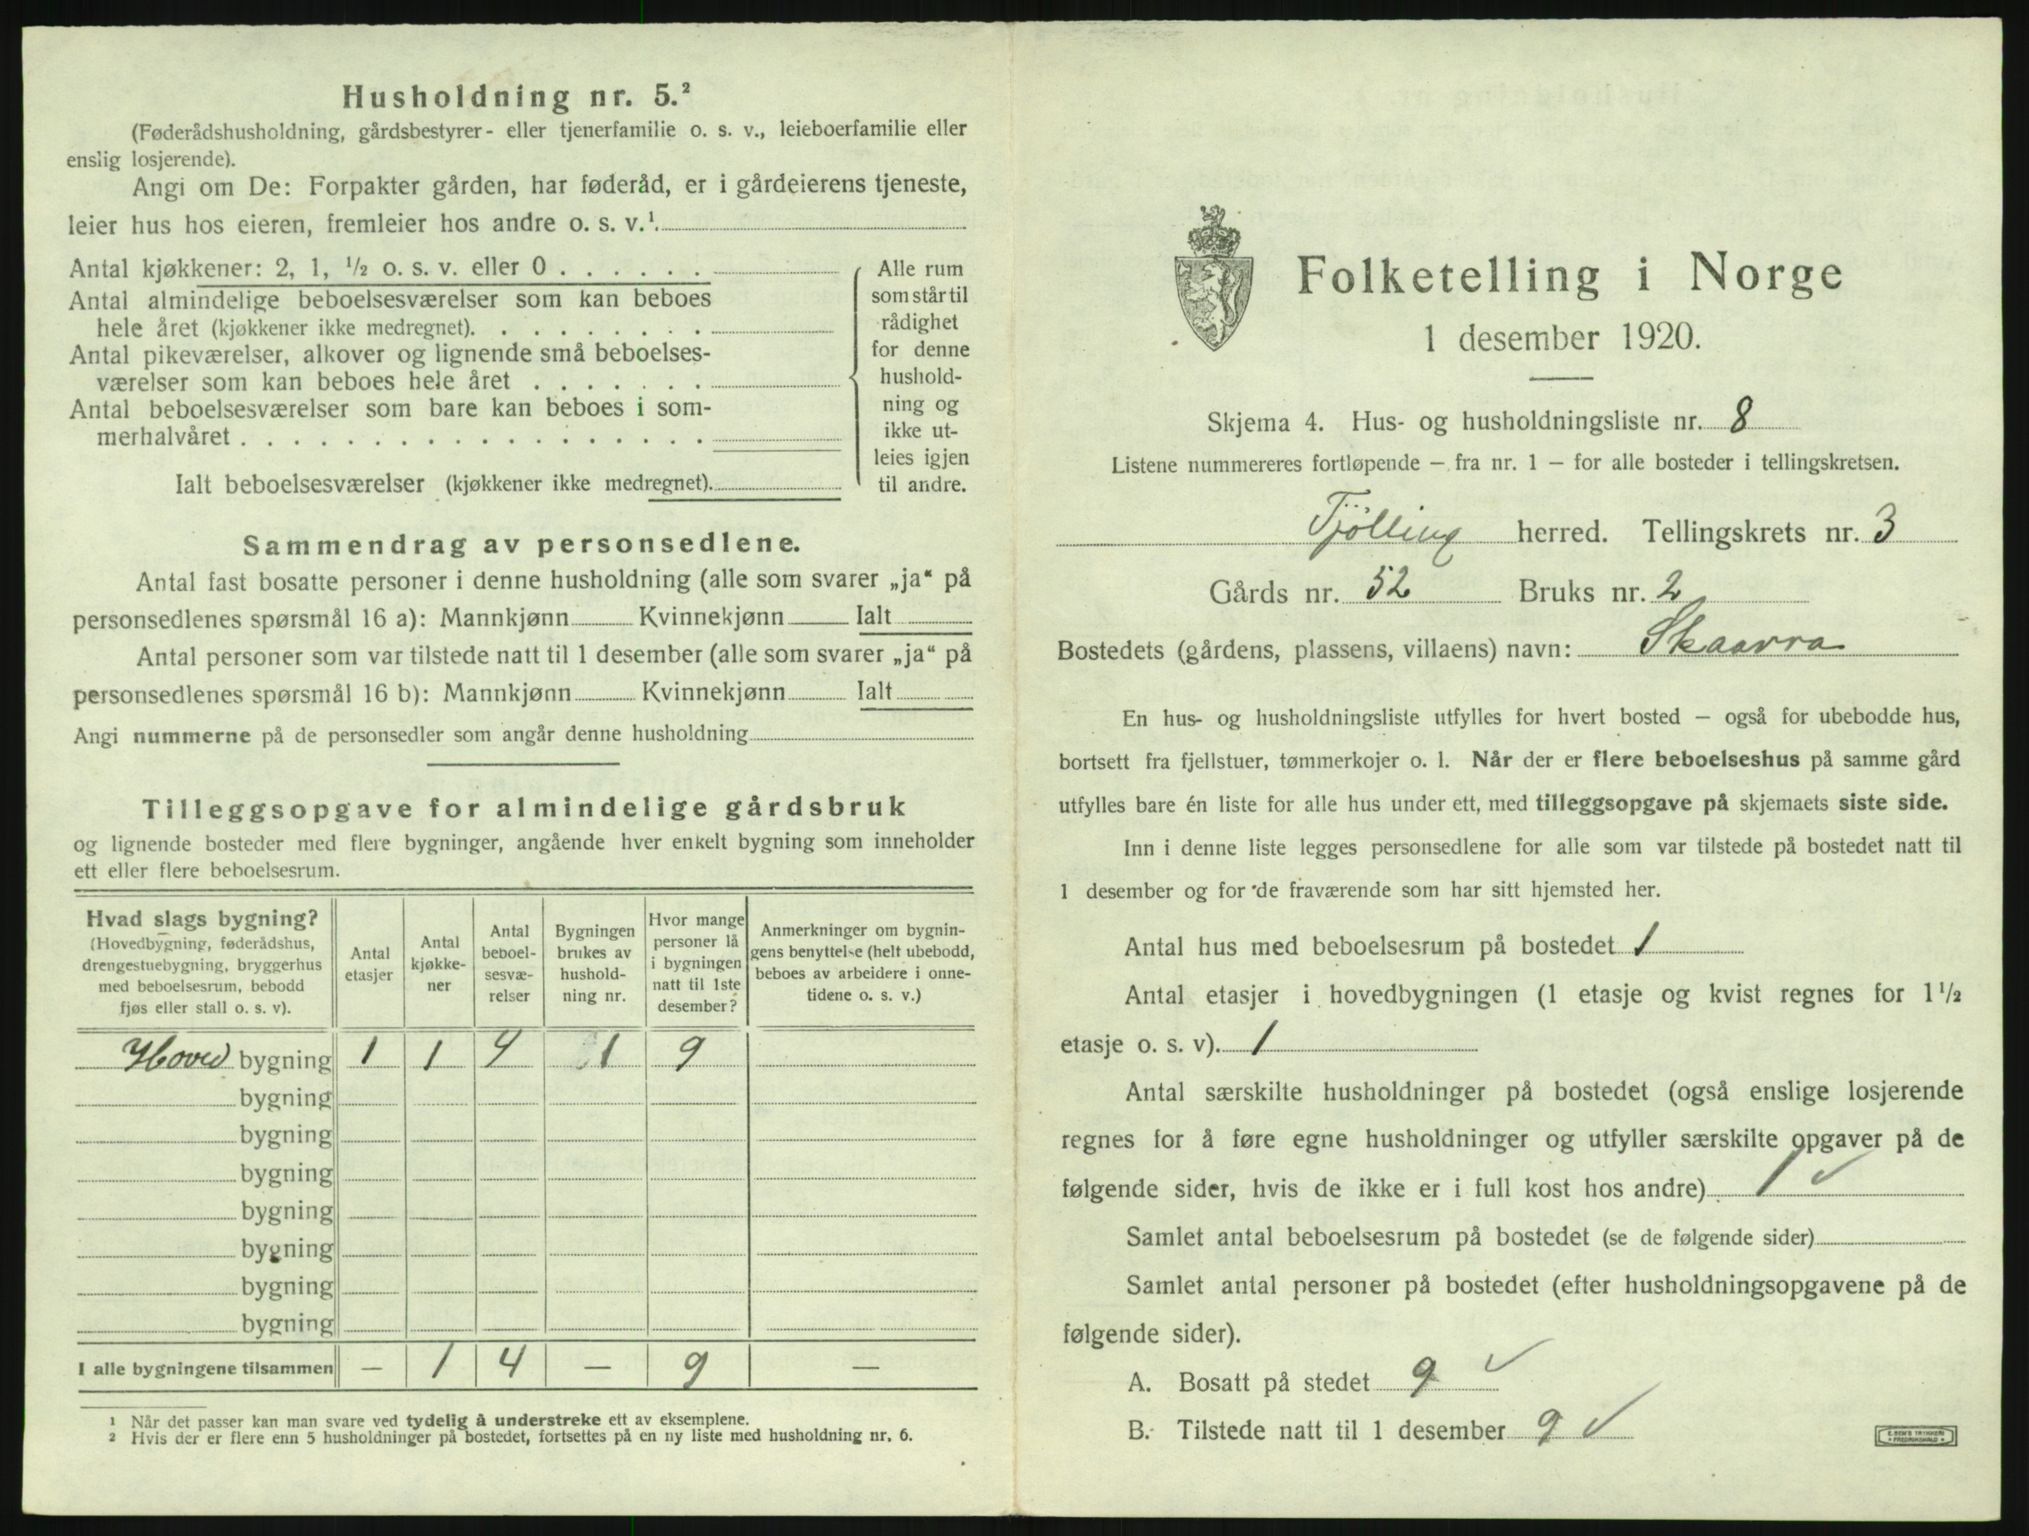 Husholdning nr. 5.²
(Føderådshusholdning, gårdsbestyrer- eller tjenerfamilie o. s. v., leieboerfamilie eller
enslig losjerende).
Angi om De: Forpakter gården, har føderåd, er i gårdeierens tjeneste,
leier hus hos eieren, fremleier hos andre o. s. v.¹.
Antal kjøkkener: 2, 1, ½ o. s. v. eller 0 . . . . . .
Antal almindelige beboelsesværelser som kan beboes
hele året (kjøkkener ikke medregnet). . . . . . . . .
Antal pikeværelser, alkover og lignende små beboelses-
værelser som kan beboes hele året . . . . . . .
Antal beboelsesværelser som bare kan beboes i som-
merhalvåret . . . . . . . . . . . . . . . . . .
Ialt beboelsesværelser (kjøkkener ikke medregnet).
Alle rum
som står til
rådighet
for denne
hushold-
ning og
ikke ut-
leies igjen
til andre.
Sammendrag av personsedlene.
Antal fast bosatte personer i denne husholdning (alle som svarer „ja“ på
personsedlenes spørsmål 16 a): Mannkjønn Kvinnekjønn Ialt
Antal personer som var tilstede natt til 1 desember (alle som svarer „ja“ på
personsedlenes spørsmål 16 b): Mannkjønn Kvinnekjønn Ialt
Angi nummerne på de personsedler som angår denne husholdning
Tilleggsopgave for almindelige gårdsbruk
og lignende bosteder med flere bygninger, angående hver enkelt bygning som inneholder
ett eller flere beboelsesrum.
Hvad slags bygning?
(Hovedbygning, føderådshus,
drengestuebygning, bryggerhus
med beboelsesrum, bebodd
fjøs eller stall o. s. v).
Antal
etasjer
Antal
kjøkke-
ner
Antal
beboel-
sesvæ-
relser
Bygningen
brukes av
hushold-
ning nr.
Hvor mange
personer lå
i bygningen
natt til 1ste
desember?
Anmerkninger om bygnin-
gens benyttelse (helt ubebodd,
beboes av arbeidere i onne-
tidene o. s. v.)
Hoved bygning 1 1 4 1 9
bygning
bygning
bygning
bygning
bygning
bygning
bygning
I alle bygningene tilsammen — 1 4 — 9 —
¹ Når det passer kan man svare ved tydelig å understreke ett av eksemplene.
² Hvis der er flere enn 5 husholdninger på bostedet, fortsettes på en ny liste med husholdning nr. 6.
Folketelling i Norge
1 desember 1920.
Skjema 4. Hus- og husholdningsliste nr. 8
Listene nummereres fortløpende – fra nr. 1 – for alle bosteder i tellingskretsen.
Tjølling herred. Tellingskrets nr. 3
Gårds nr. 52 Bruks nr. 2
Bostedets (gårdens, plassens, villaens) navn: Skaavra
En hus- og husholdningsliste utfylles for hvert bosted – også for ubebodde hus,
bortsett fra fjellstuer, tømmerkojer o. l. Når der er flere beboelseshus på samme gård
utfylles bare én liste for alle hus under ett, med tilleggsopgave på skjemaets siste side.
Inn i denne liste legges personsedlene for alle som var tilstede på bostedet natt til
1 desember og for de fraværende som har sitt hjemsted her.
Antal hus med beboelsesrum på bostedet 1
Antal etasjer i hovedbygningen (1 etasje og kvist regnes for 1½
etasje o. s. v). 1
Antal særskilte husholdninger på bostedet (også enslige losjerende
regnes for å føre egne husholdninger og utfyller særskilte opgaver på de
følgende sider, hvis de ikke er i full kost hos andre) 1 ✓
Samlet antal beboelsesrum på bostedet (se de følgende sider)
Samlet antal personer på bostedet (efter husholdningsopgavene på de
følgende sider).
A. Bosatt på stedet 9 ✓
B. Tilstede natt til 1 desember 9 ✓